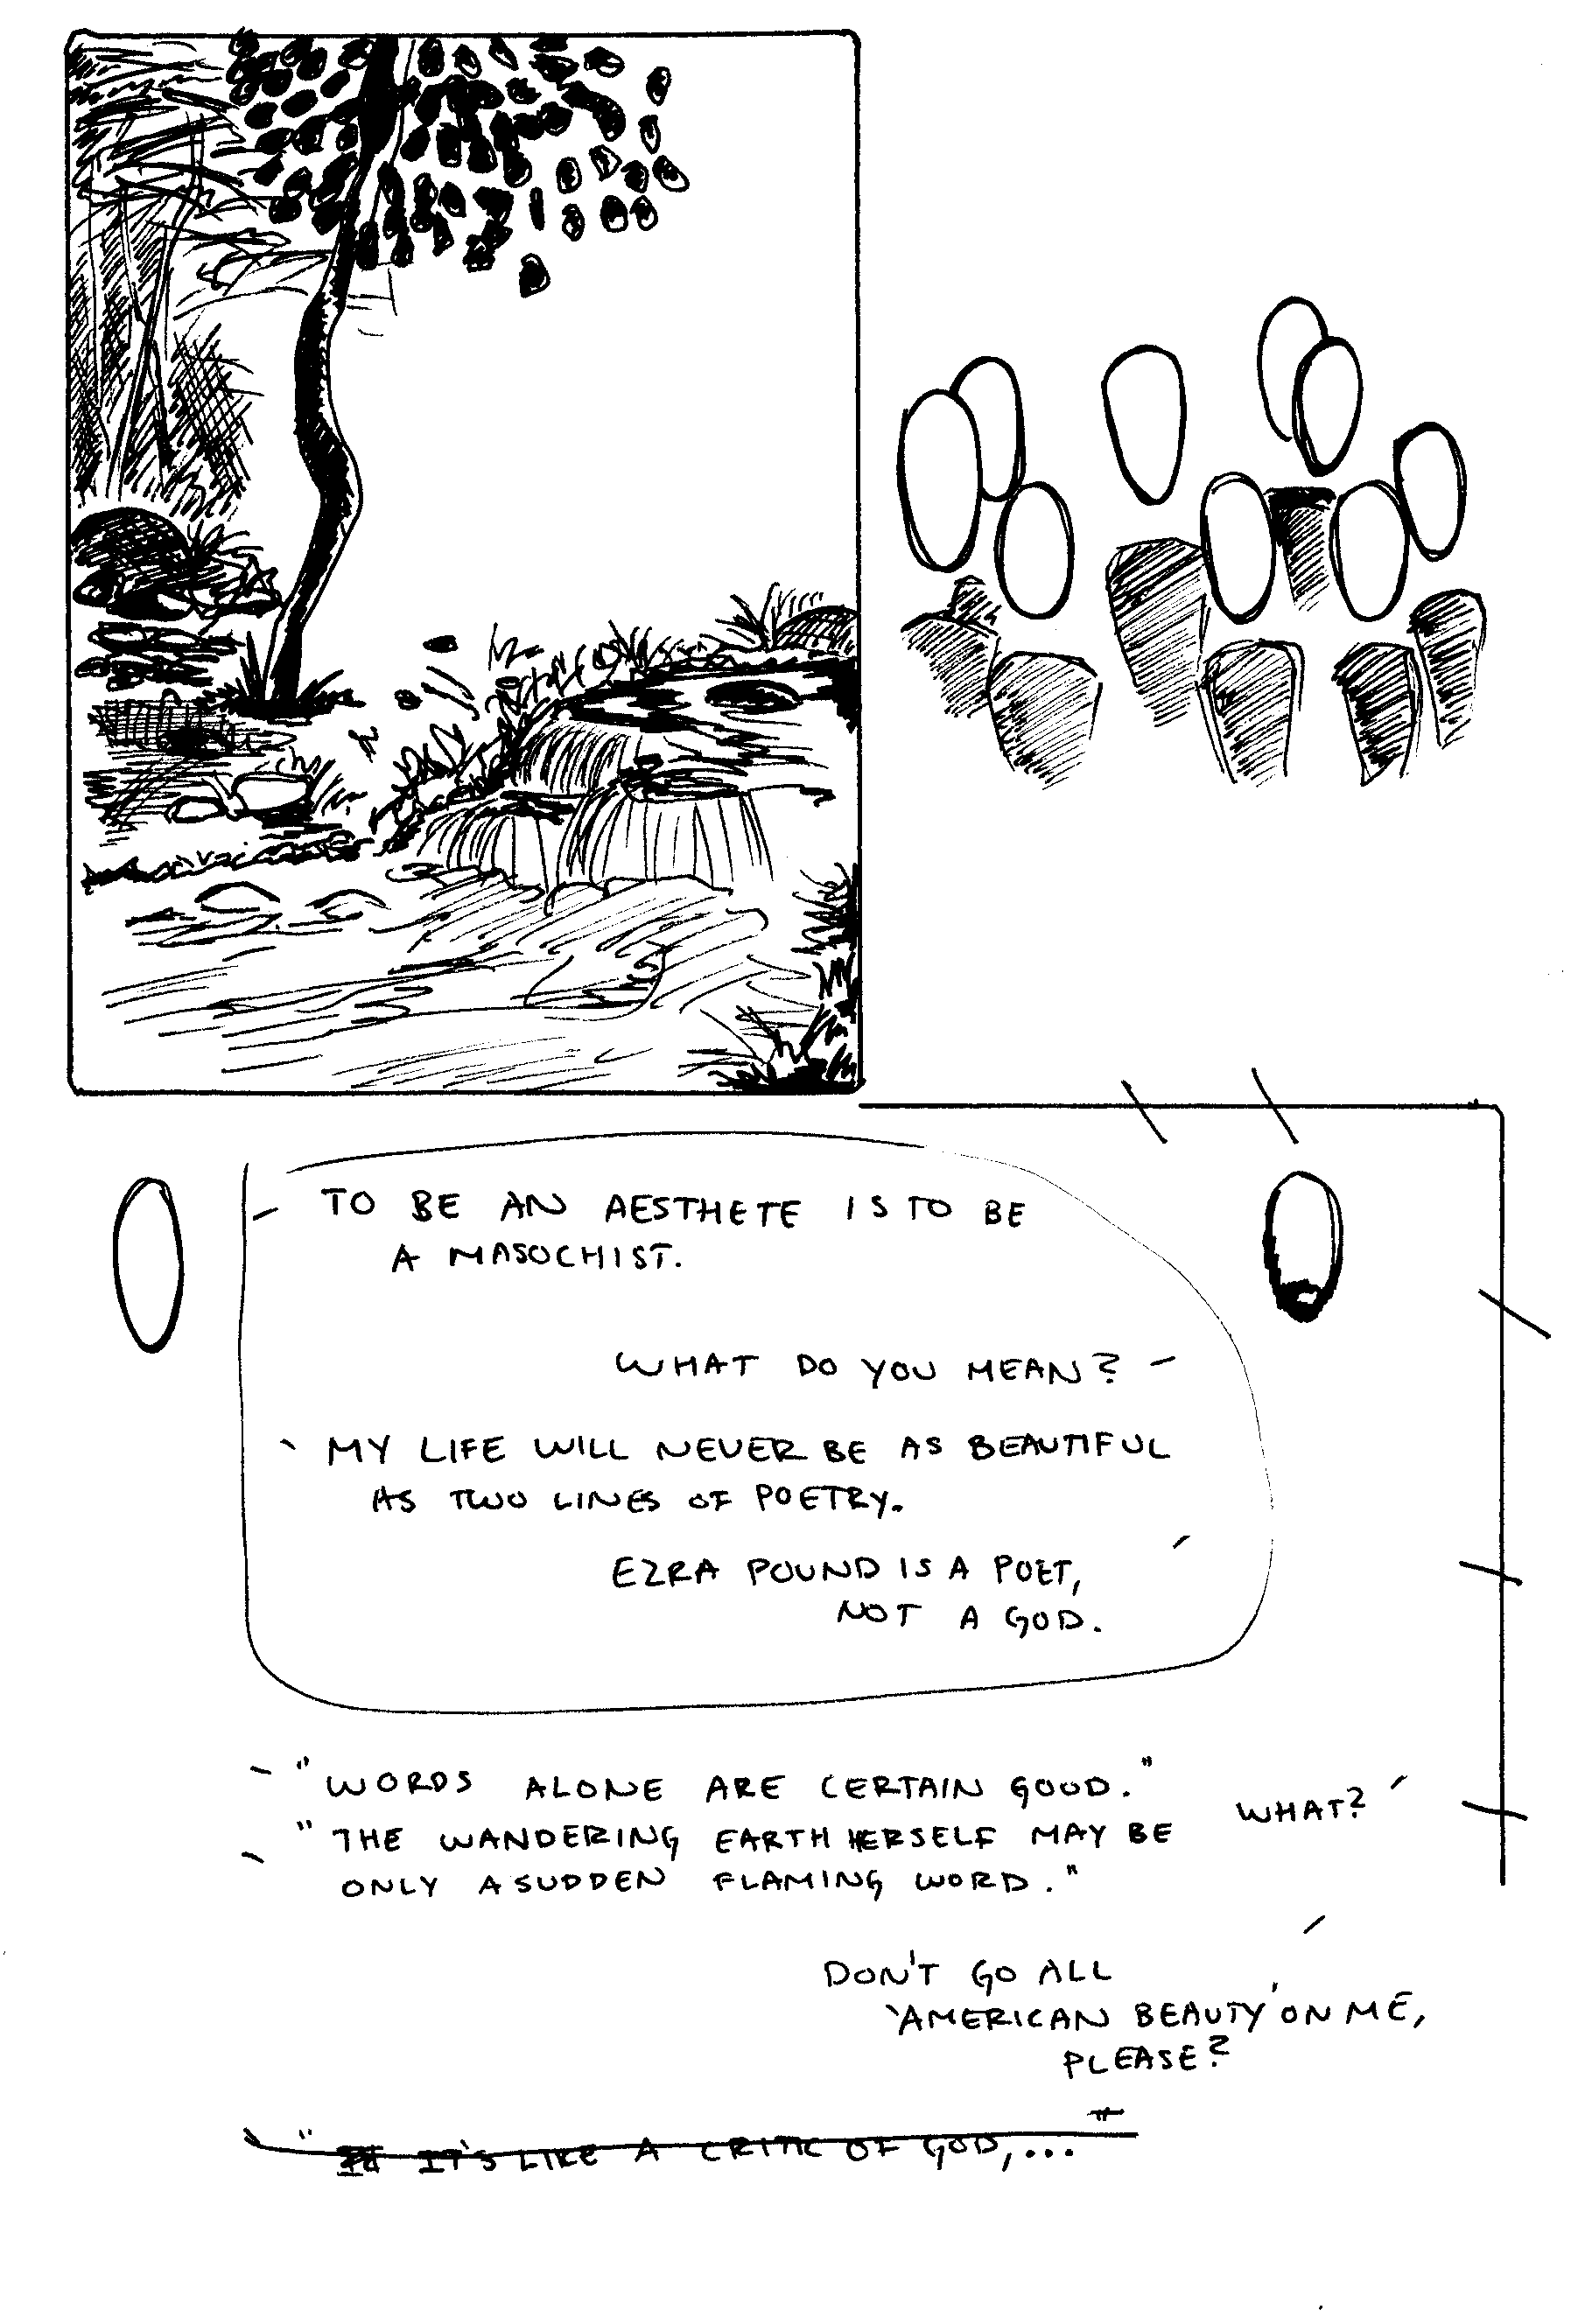 - TO BE AN AESTHETE IS TO BE
A MASOCHIST.
WHAT DO YOU MEAN? -
- MY LIFE WILL NEVER BE AS BEAUTIFUL
AS TWO LINES OF POETRY.
EZRA POUND IS A POET, -
NOT A GOD.
- "WORDS ALONE ARE CERTAIN GOOD."
WHAT? -
- "THE WANDERING EARTH HERSELF MAY BE
ONLY A SUDDEN FLAMING WORD."
DON'T GO ALL -
'AMERICAN BEAUTY' ON ME,
PLEASE?
- " IT'S LIKE A CRITIC OF GOD,..."